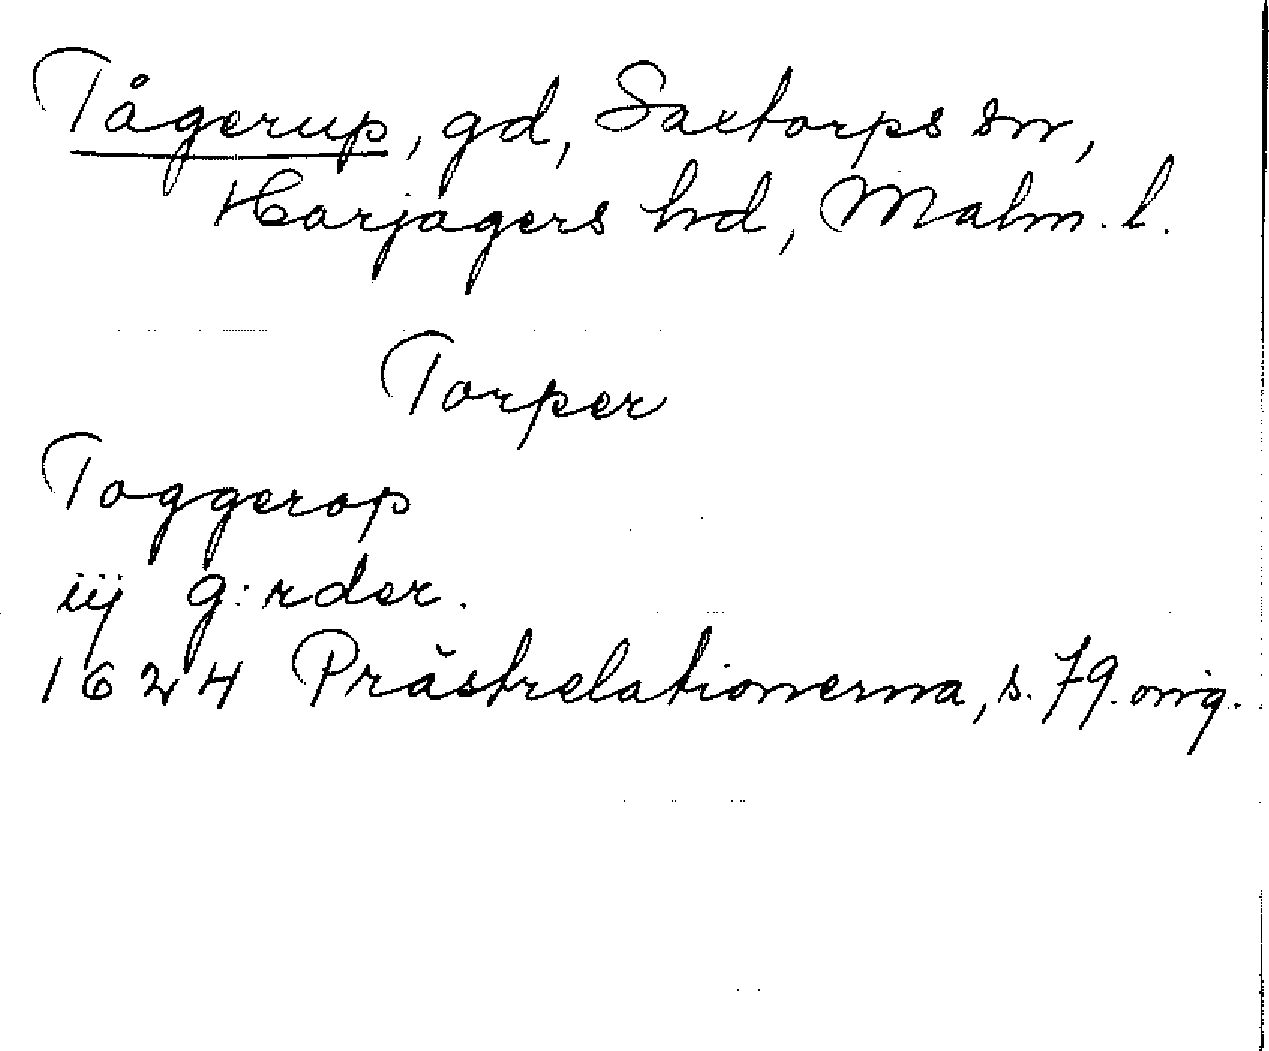 Tågerup, gd, Saxtorps sn,
Harjagers hd, Malm. l.
Torper
Toggerop
iij g:rder.
1624 Prästrelationerna, s. 79. orig.